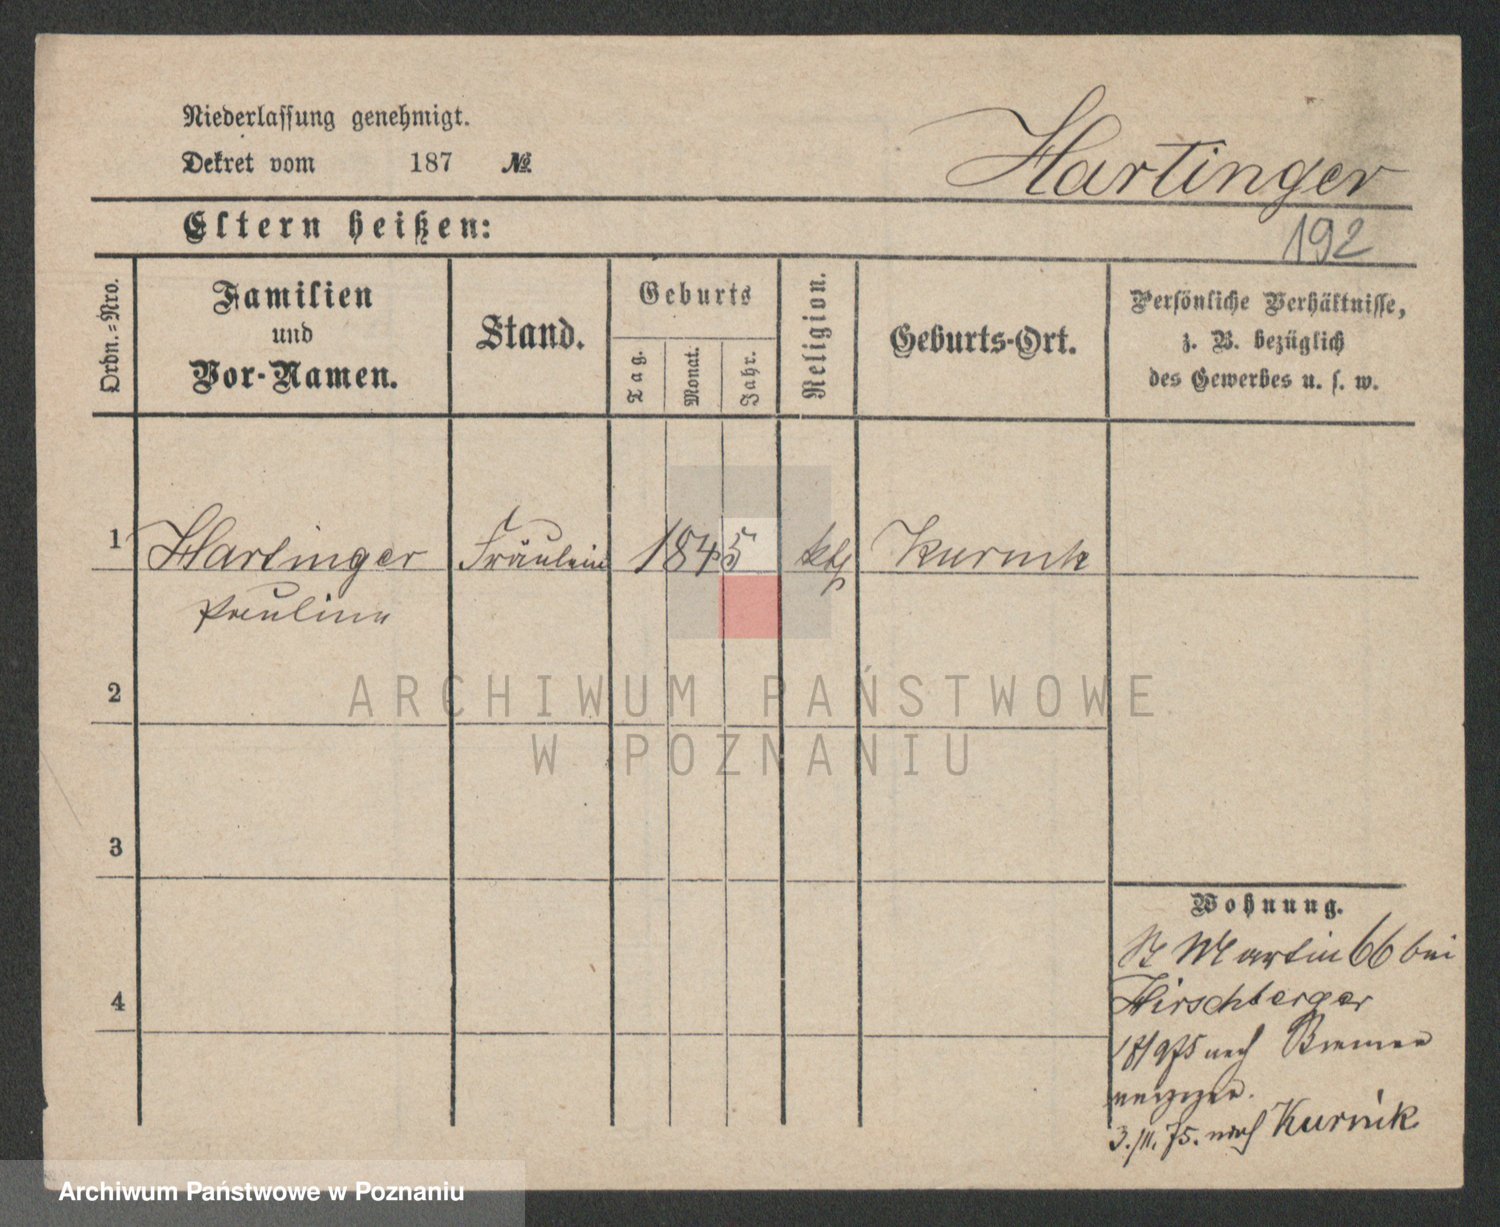 Niederlassung genehmigt.
Dekret vom 187 №
Hartinger
192
Eltern heißen:
Ordn.=Nro.
Familien
und
Vor-Namen.
Stand.
Geburts
Tag.
Monat.
Jahr.
Religion.
Geburts-Ort.
Persönliche Verhältnisse,
z. B. bezüglich
des Gewerbes u. s. w.
1 Hartinger Fräulein 1845 kth Kurnik
Pauline
2
ARCHIWUM PAŃSTWOWE
W POZNANIU
3
4
Wohnung.
St Martin 66 bei
Hirschberger
nach Bremen
3./11. 75. nach Kurnik
Archiwum Państwowe w Poznaniu